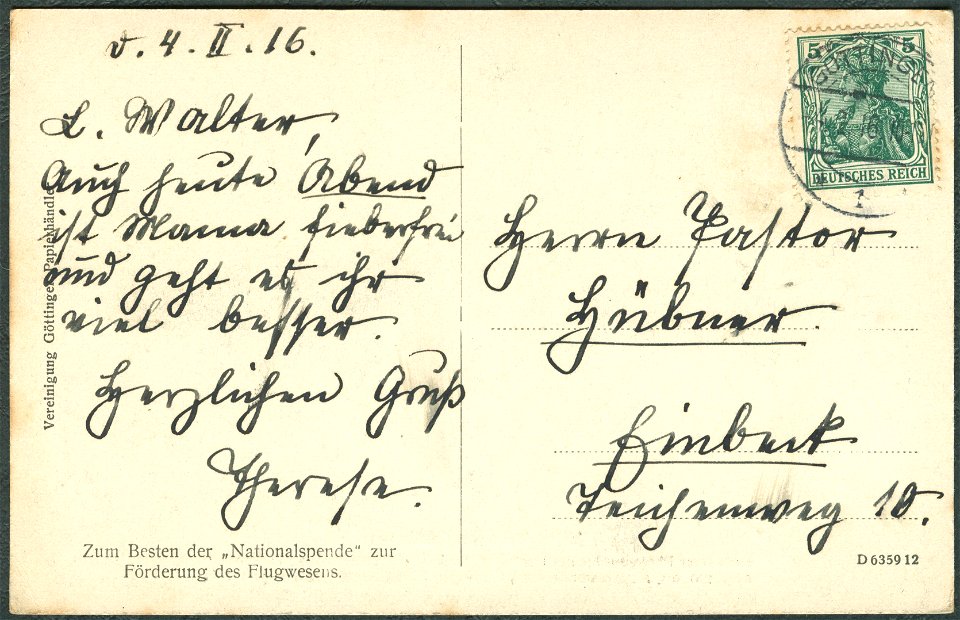 d. 4. II. 16.
L. Walter,
Auch heute Abend
ist Mama fieberfrei
und geht es ihr
viel besser.
Herzlichen Gruß
Therese.
Vereinigung Göttinger Papierhändler
Zum Besten der „Nationalspende“ zur
Förderung des Flugwesens.
5 5
DEUTSCHES REICH
GÖTTINGEN
1
Herrn Pastor
Hübner.
Einbeck
Teichenweg 10.
D 6359 12